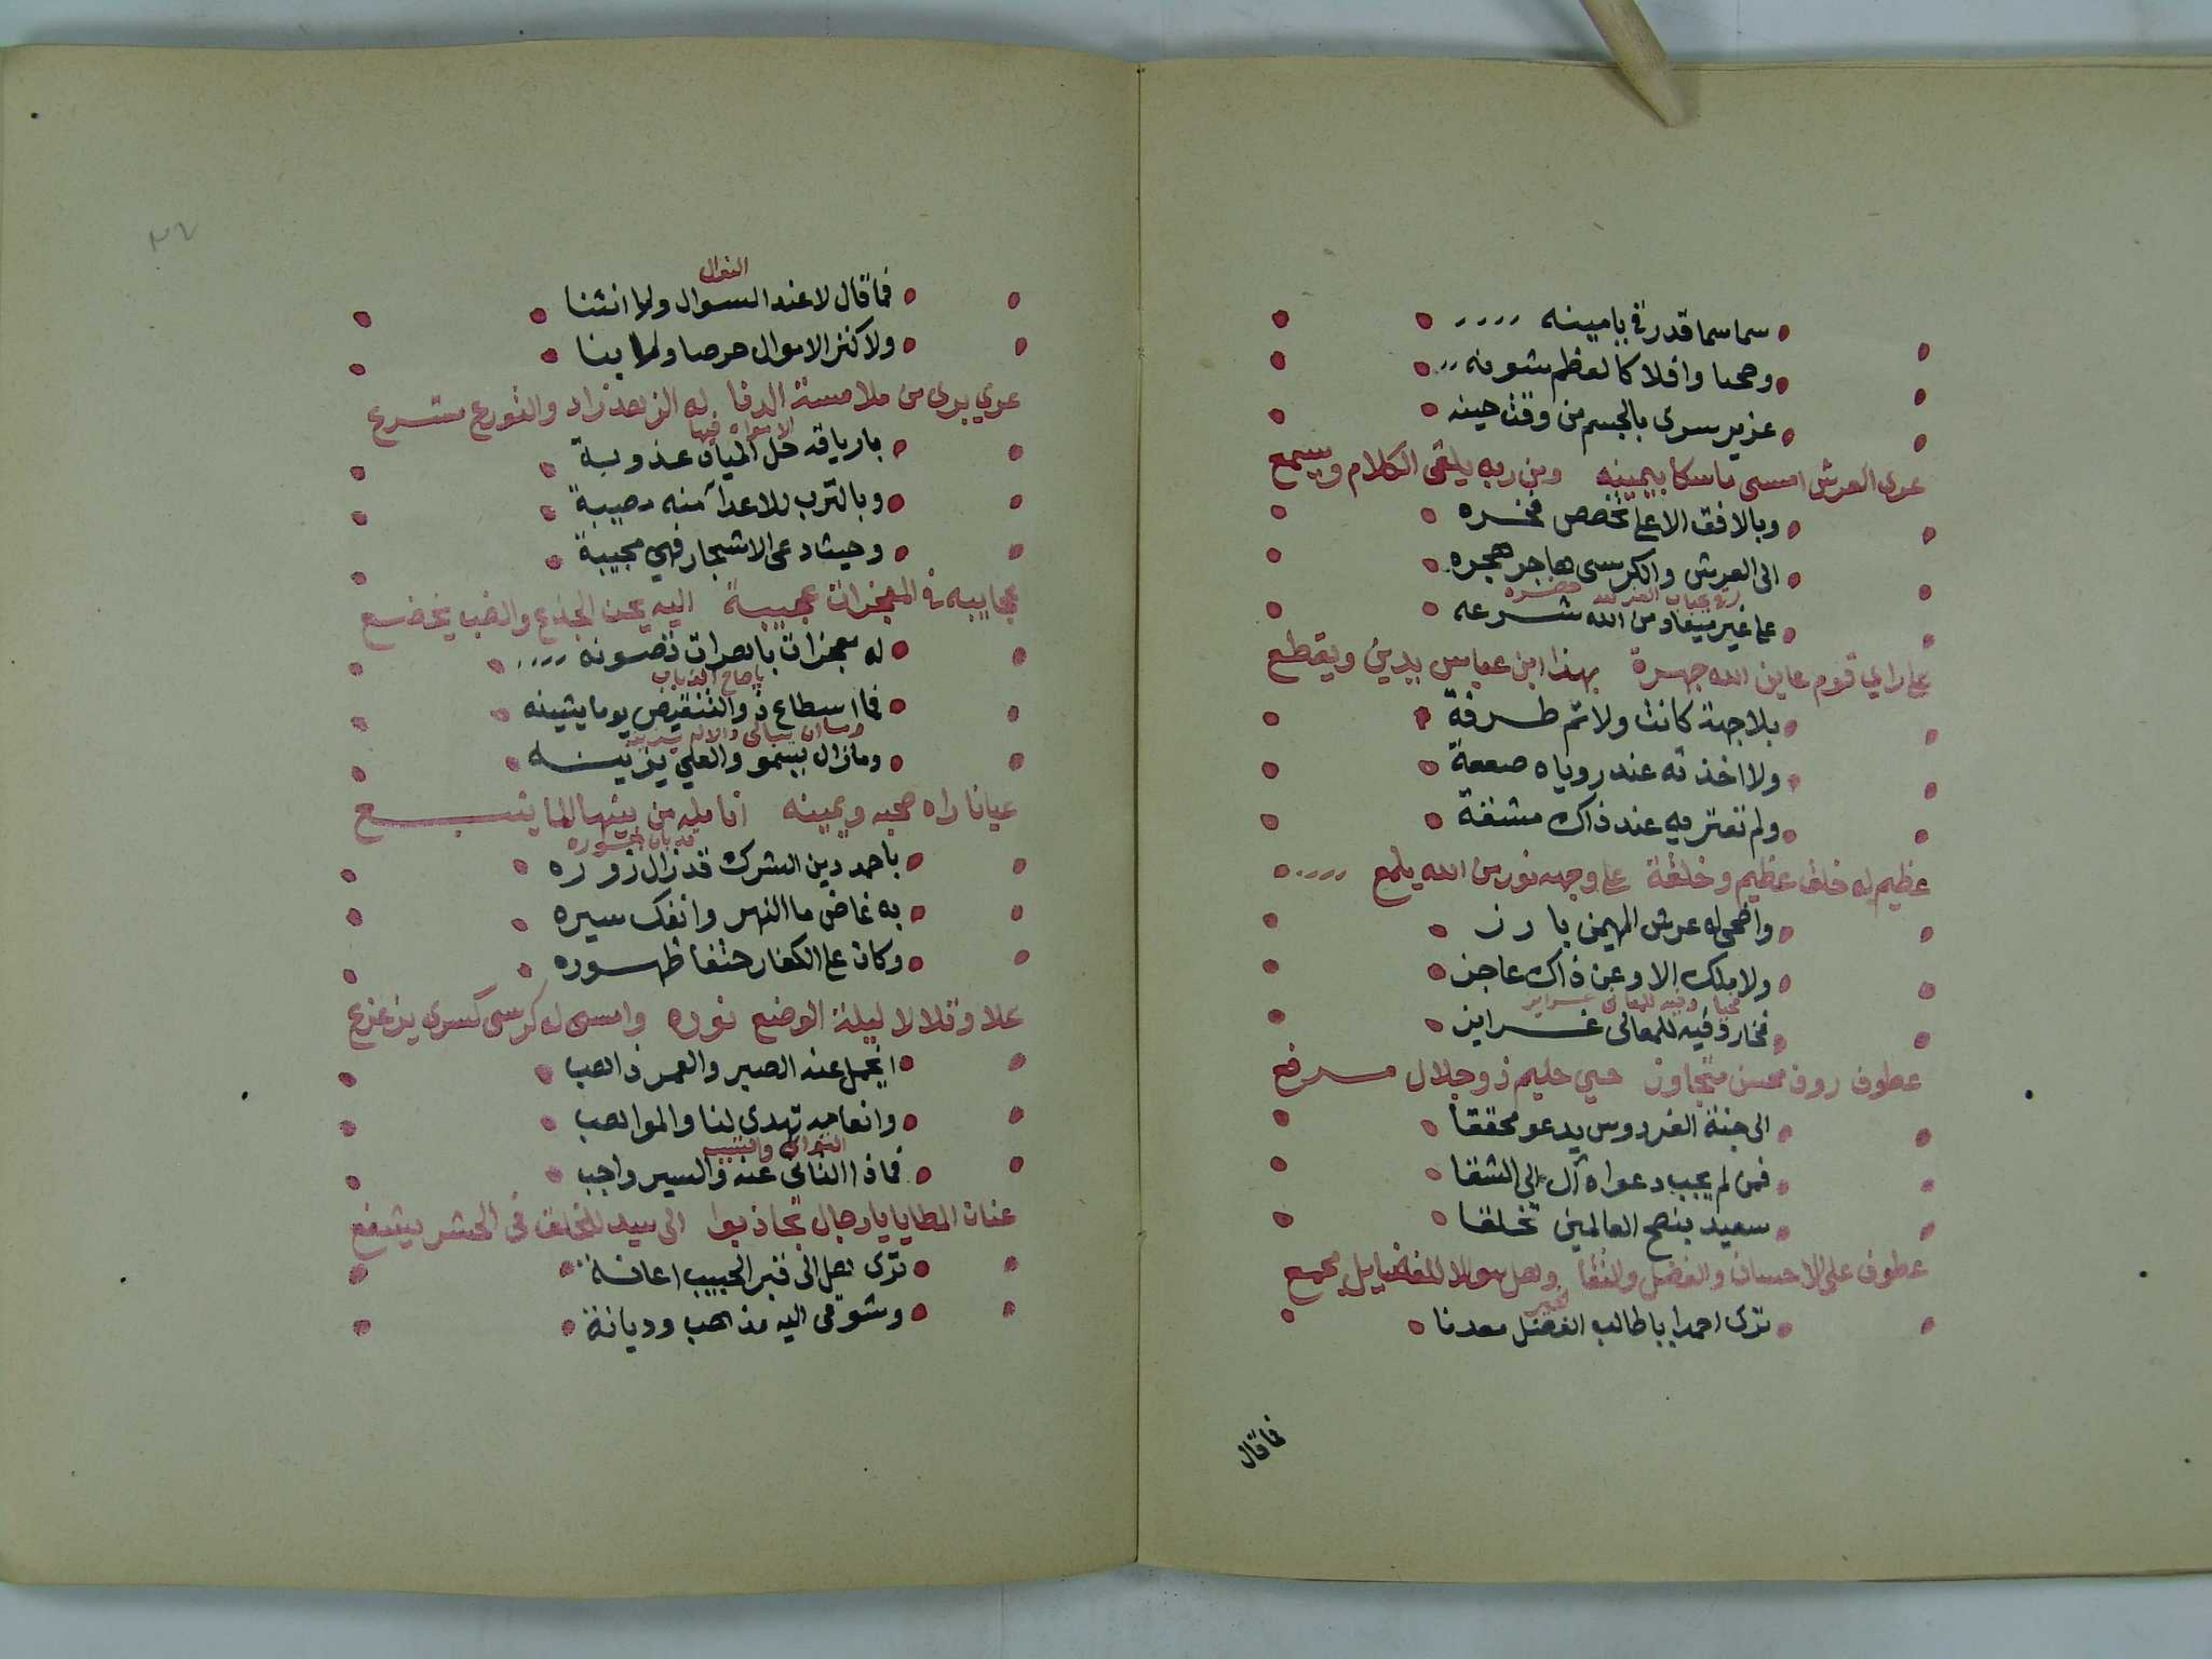 سما سما قدر في ياميينه
وصحبا وافلاكا لعظم شونه
عزير سرى بالجسم من وقت حينه
عوى العرش امسى ماسكا بيمينه ومن ربه يلقى الكلام ويسمع
وبالافق الاعلى تخصص فخره
الى العرش والكرسى هاجر هجره
على غير ميعاد من الله شرعه
على راي قوم عاين الله جهرة بهذا ابن عباس يدين ويقطع
بلا جهة كانت ولا ثم طرفة
ولا اخذته عند روياه صعقة
ولم تعتريه عند ذاك مشقة
عظيم له خلق عظيم وخلقة على وجهه نور من الله يلمع
واضحى له عرش المهيمن بارز
ولا ملك الا وعن ذاك عاجز
فخار وفيه للمعالى غرايز
عطوف روف محسن متجاوز حيي حليم ذو جلال مرفع
الى جنة الفردوس يدعو محققا
فمن لم يجب دعواه آل الى الشقا
سعيد بنصح العالمين تخلقا
عطوف على الاحسان والفضل والتقا وهل سولا للفضايل مجمع
ترى احمدا يا طالب الفضل معدنا
فما قال
النوال
فما قال لا عند السوال ولا انثنا
ولا كنز الاموال حرصا ولا بنا
عري بري من ملامسة الدنا له الزهد زاد والتورع مشرع
الامواه فيها
بارياقه حل المياه عذوبة
وبالترب للاعداء منه مصيبة
وحيثا دعى الاشجار فهي مجيبة
عجايبه في المعجزات عجيبة اليه يحن الجذع والضب يخضع
له معجزات باهرات تصونه
فما اسطاع ذو التنقيص يوما يشينه
وما زال يسمو والعلى يزينه
عيانا راه صحبه ويمينه انامله من بينها الما ينبع
باحمد دين الشرك قد زال زوره
به غاض ما النهر وانفك سيره
وكان على الكفار حتفا ظهوره
علا وتلالا ليلة الوضع نوره وامسى له كرسى كسرى يزعزع
ايجمل عنه الصبر والعمر ذاهب
وانعامه تهدى لنا والمواهب
التوانى
فماذا التانى عنه والسير واجب
عنان المطايا يا رجال تجاذبوا الى سيد للخلق في الحشر يشفع
ترى هل الى قبر الحبيب اعانة
وشوقى اليه مذهب وديانة